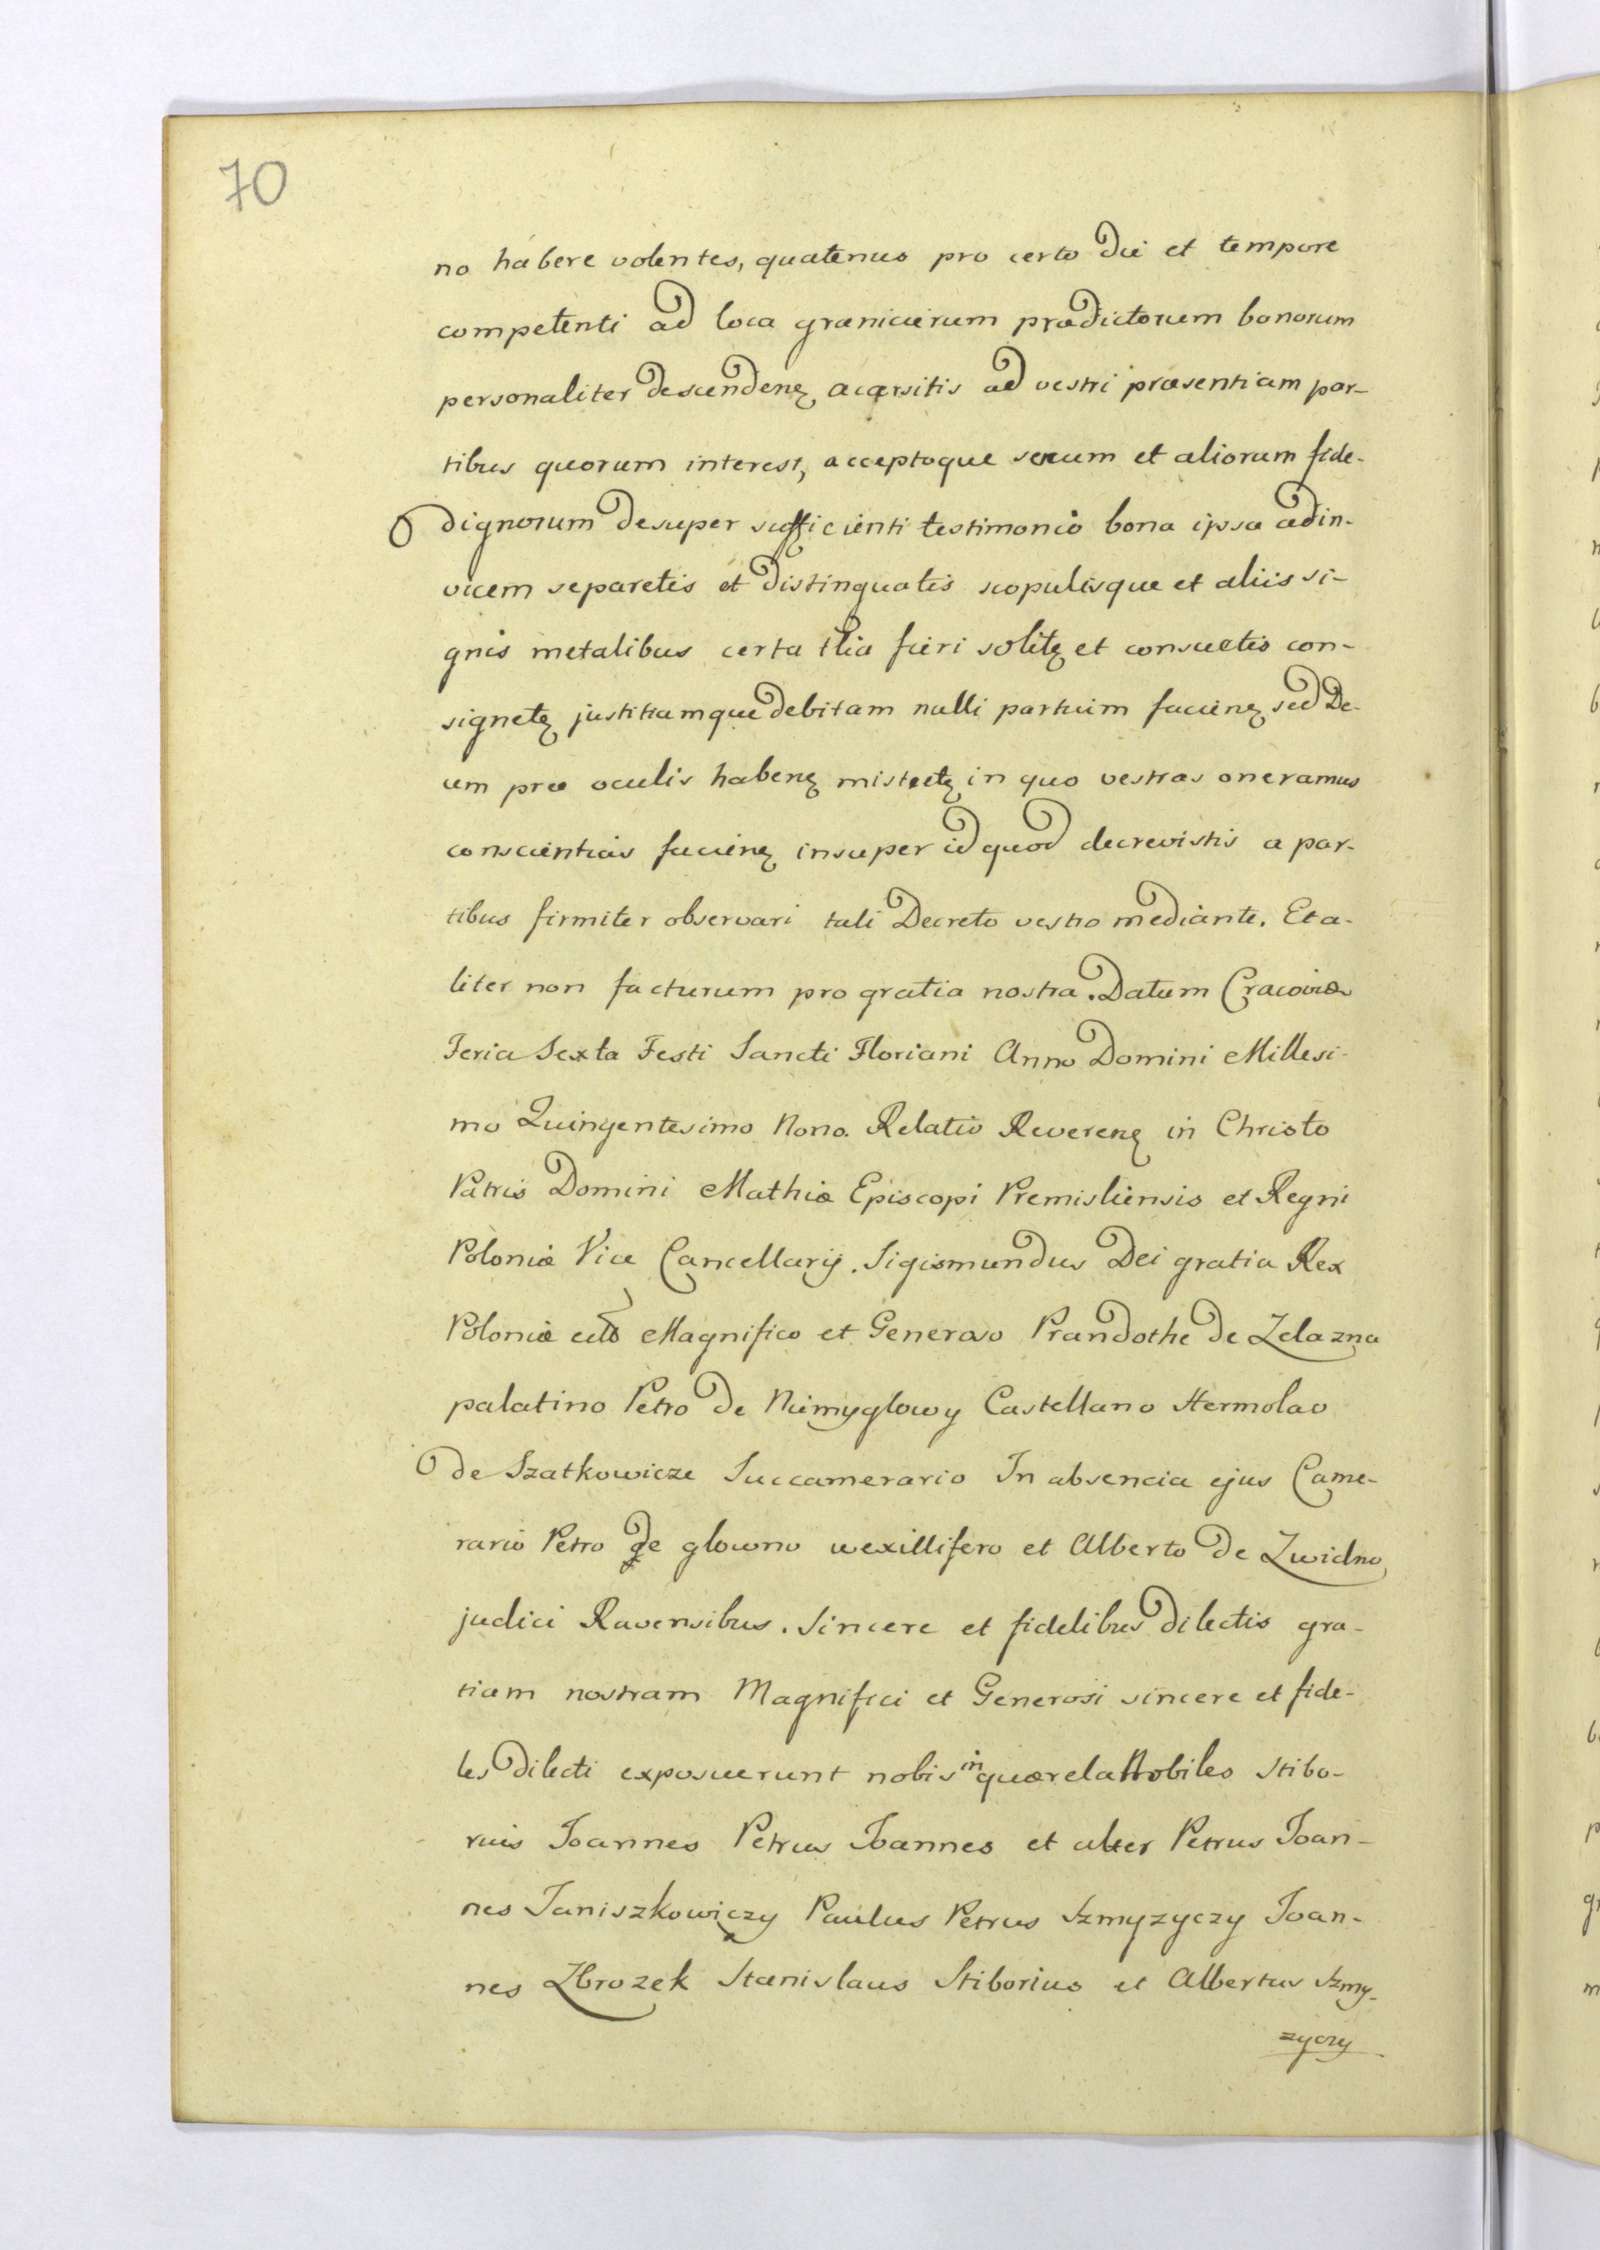 70
no habere volentes, quatenus pro certo die et tempore
competenti ad loca granicierum prædictorum bonorum
personaliter descendenȩ acærsitis ad vestri præsentiam par-
tibus quorum interest, acceptoque senum et aliorum fide-
dignorum desuper sufficienti testimonio bona ipsa adin-
vicem separetis et distinguatis scopulisque et aliis si-
gnis metalibus certa tlia fieri solitȩ et consuetis con-
signetȩ justitiamque debitam nulli partium facienȩ sed De-
um præ oculis habenȩ in quo vestras oneramus
conscientias facienȩ insuper id quod decrevistis a par-
tibus firmiter observari tali Decreto vestro mediante. Et a-
liter non facturum pro gratia nostra. Datum Cracoviæ
Feria Sexta Festi Sancti Floriani Anno Domini Millesi-
mo Quingentesimo Nono. Relatio Reverenȩ in Christo
Patris Domini Mathiæ Episcopi Premisliensis et Regni
Poloniæ Vice Cancellarij. Sigismundus Dei gratia Rex
Poloniæ Magnifico et Generoso Prandothe de Zelazna
palatino Petro de Niemyglowy Castellano Hermolao
de Szatkowicze Succamerario In absencia ejus Came-
rario Petro de glowno wexillifero et Alberto de Zwidno
judici Ravensibus. Sincere et fidelibus dilectis gra-
tiam nostram Magnifici et Generosi sincere et fide-
les dilecti exposuerunt nobis in quærela Nobiles Stibo-
rius Joannes Petrus Joannes et alter Petrus Joan-
nes Janiszkowiczy Paulus Petrus Szmyzyczy Joan-
nes Zbrozek Stanislaus Stiborius et Albertus Szmy-
zyczy